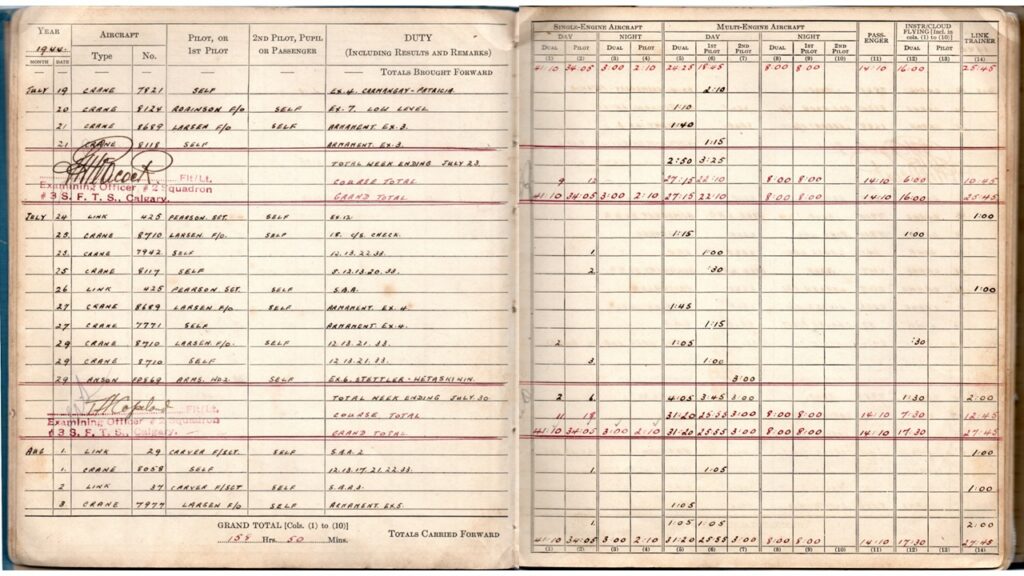 YEAR 1944. AIRCRAFT PILOT, OR 1ST PILOT 2ND PILOT, PUPIL OR PASSENGER DUTY (INCLUDING RESULTS AND REMARKS) SINGLE-ENGINE AIRCRAFT MULTI-ENGINE AIRCRAFT PASSENGER INSTR/CLOUD FLYING [Incl. in cols. (1) to (10)] LINK TRAINER
MONTH DATE Type No. DAY NIGHT DAY NIGHT
DUAL PILOT DUAL PILOT DUAL 1ST PILOT 2ND PILOT DUAL 1ST PILOT 2ND PILOT DUAL PILOT
(1) (2) (3) (4) (5) (6) (7) (8) (9) (10) (11) (12) (13) (14)
— — — — — — — TOTALS BROUGHT FORWARD 41:10 34:05 3:00 2:10 24:25 18:45 8:00 8:00 14:10 16:00 25:45
JULY 19 CRANE 7821 SELF EX.4. CARMANGAY-PATRICIA. 2:10
20 CRANE 8124 ROBINSON F/O SELF EX-7. LOW LEVEL 1:10
21 CRANE 8689 LARSEN F/O SELF ARMAMENT EX.3. 1:40
21 CRANE 8118 SELF ARMAMENT. EX.3. 1:15
TOTAL WEEK ENDING JULY 23 2:50 3:25
Flt/Lt. COURSE TOTAL 9 12 27:15 22:10 8:00 8:00 14:10 6:00 10:45
Examining Officer # 2 Squadron GRAND TOTAL 41:10 34:05 3:00 2:10 27:15 22:10 8:00 8:00 14:10 16:00 25:45
# 3 S. F. T. S., Calgary.
JULY 24 LINK 425 PEARSON SGT. SELF EX.12 1:00
25. CRANE 8710 LARSEN. F/O. SELF 18. C/S CHECK. 1:15 1:00
25. CRANE 7942 SELF 12.13.22.33. 1. 1:00
25 CRANE 8117 SELF 8.12.13.20.33. 2. :30
26 LINK 425 PEARSON SGT. SELF S.B.A. 1:00
27 CRANE 8689 LARSEN F/O SELF ARMAMENT EX.4. 1:45
27 CRANE 7771 SELF ARMAMENT EX.4. 1:15
29 CRANE 8710 LARSEN. F/O. SELF 12.13.21.33. 2 1:05 :30
29 CRANE 8710 SELF 12.13.21.33. 3. 1:00
29 ANSON SELF EX.6. STETTLER-WETASKIWIN. 3:00
TOTAL WEEK ENDING JULY 30 2 6. 4:05 3:45 3:00 1:30 2:00
Copeland Flt/Lt. COURSE TOTAL 11 18 31:20 25:55 3:00 8:00 8:00 14:10 7:30 12:45
Examining Officer # 2 Squadron GRAND TOTAL 41:10 34:05 3:00 2:10 31:20 25:55 3:00 8:00 8:00 14:10 17:30 27:45
# 3 S. F. T. S., Calgary.
AUG 1. LINK 29 CARVER F/SGT. SELF S.B.A. 2 1:00
1. CRANE 8058 SELF 12.13.17.21.22.33. 1. 1:05
2 LINK 37 CARVER F/SGT SELF S.B.A.3. 1:00
3 CRANE 7977 LARSEN F/O SELF ARMAMENT EX.5. 1:05
GRAND TOTAL [Cols. (1) to (10)] 1. 1:05 1:05 2:00
Hrs. 50 Mins. TOTALS CARRIED FORWARD 41:10 34:05 3:00 2:10 31:20 25:55 3:00 8:00 8:00 14:10 17:30 27:45
(1) (2) (3) (4) (5) (6) (7) (8) (9) (10) (11) (12) (13) (14)